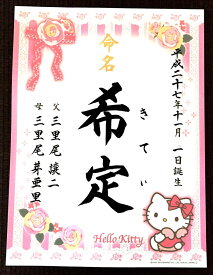 平成二十七年十一月 一日誕生
命名
希定
きてぃ
父 三里尾譲二
母 三里尾芽亜里
Hello Kitty